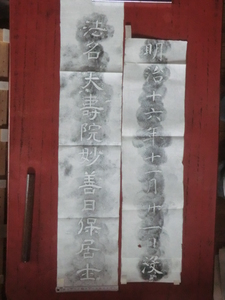 明治十六年十二月廿一日没
法名大壽院妙善日保居士